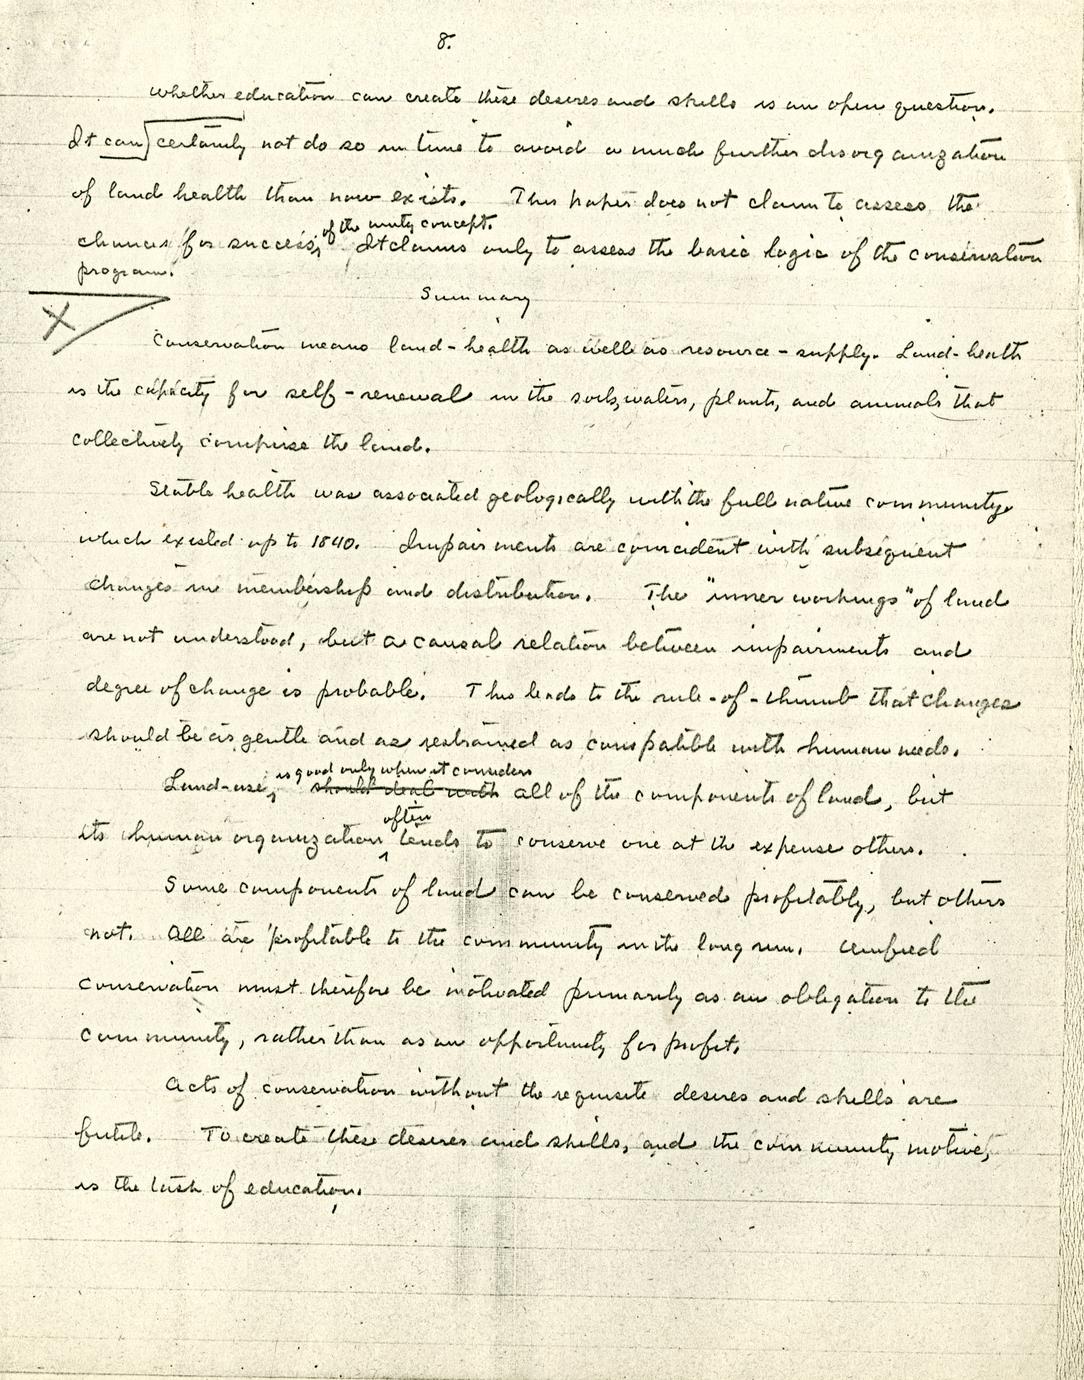 8.
whether education can create these desires and skills is an open question.
It can certainly not do so in time to avoid a much further disorganization
of land health than now exists. This paper does not claim to assess the
of the unity concept.
chances for success, It claims only to assess the basic logic of the conservation
program.
Summary
X
Conservation means land-health as well as resource-supply. Land-health
is the capacity for self-renewal in the soils, waters, plants, and animals that
collectively comprise the land.
Stable health was associated geologically with the full native community
which existed up to 1840. Impairments are coincident with subsequent
changes in membership and distribution. The "inner workings" of land
are not understood, but a causal relation between impairments and
degree of change is probable. This leads to the rule-of-thumb that changes
should be as gentle and as restrained as compatible with human needs.
is good only when it considers
Land-use, should deal with all of the components of land, but
often
its human organization tends to conserve one at the expense others.
Some components of land can be conserved profitably, but others
not. All are profitable to the community in the long run. Unified
conservation must therefore be motivated primarily as an obligation to the
community, rather than as an opportunity for profit.
Acts of conservation without the requisite desires and skills are
futile. To create these desires and skills, and the community motive,
is the task of education.